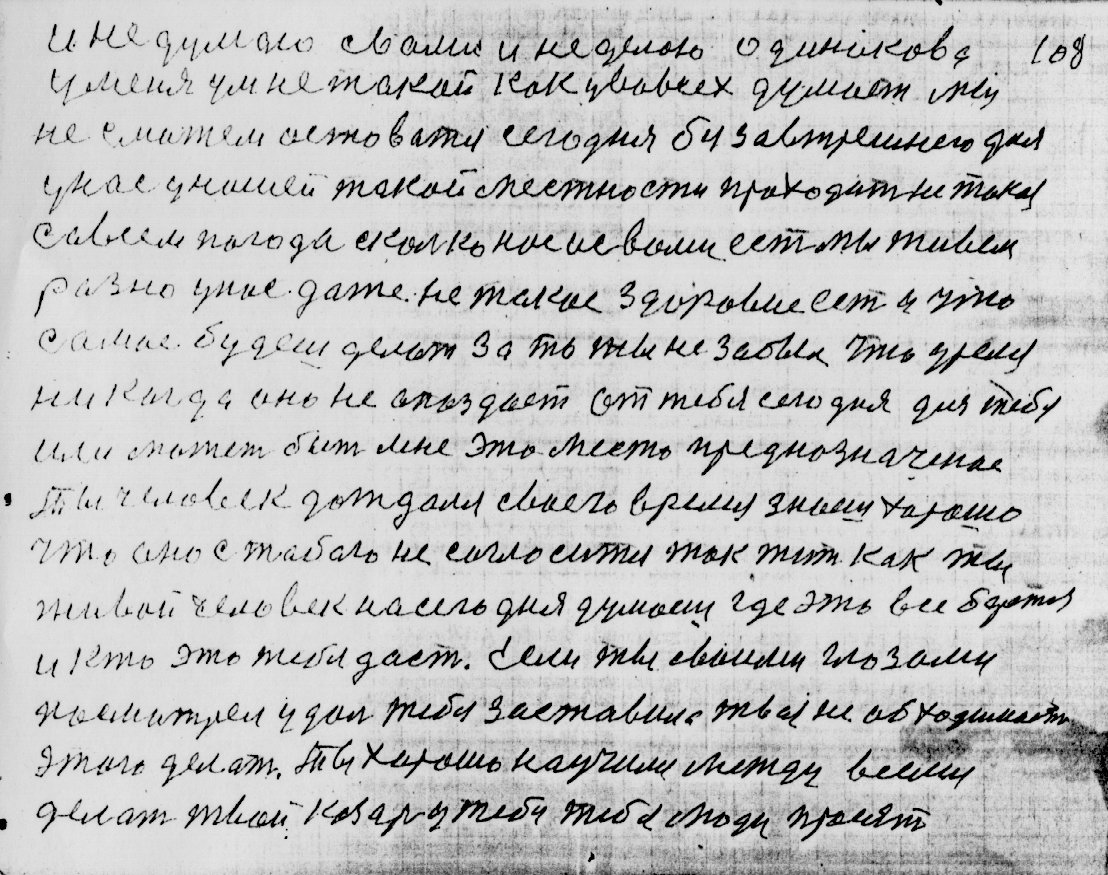 и не думаю свами и не делаю одинакова 108
у меня ум не такой как увовсех думает мы
не сможем астоватя сегодня бу завтрешнего дня
унас унашей такой местности проходят не такая
савсем погода сколко нас с вами ест мы живем
разно унас даже не такое здоровие ест и что
самое будеш делат за то ты не забыл что время
никагда оно не апаздает от тебя сегодня для тебя
или может быт мне это место предназначеное
ты человек дождался своего время знаеш хорошо
что оно с табою не согласится так жит как ты
живой человек насегодня думаеш где это все берется
и кто это тебе даст. Если ты своими глазами
посмотрел и дал тебя заставила твая необходимость
этого делат. Ты хорошо научили между всеми
делат твой у тебя тебя люди просят